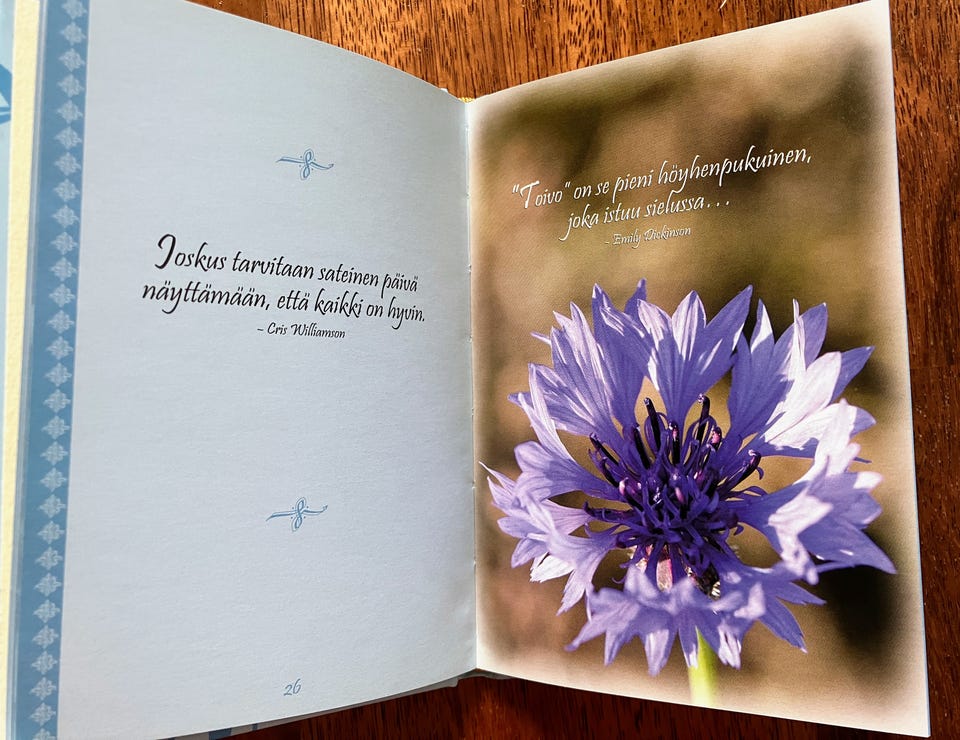 Joskus tarvitaan sateinen päivä
näyttämään, että kaikki on hyvin.
– Cris Williamson
26
"Toivo" on se pieni höyhenpukuinen,
joka istuu sielussa...
– Emily Dickinson